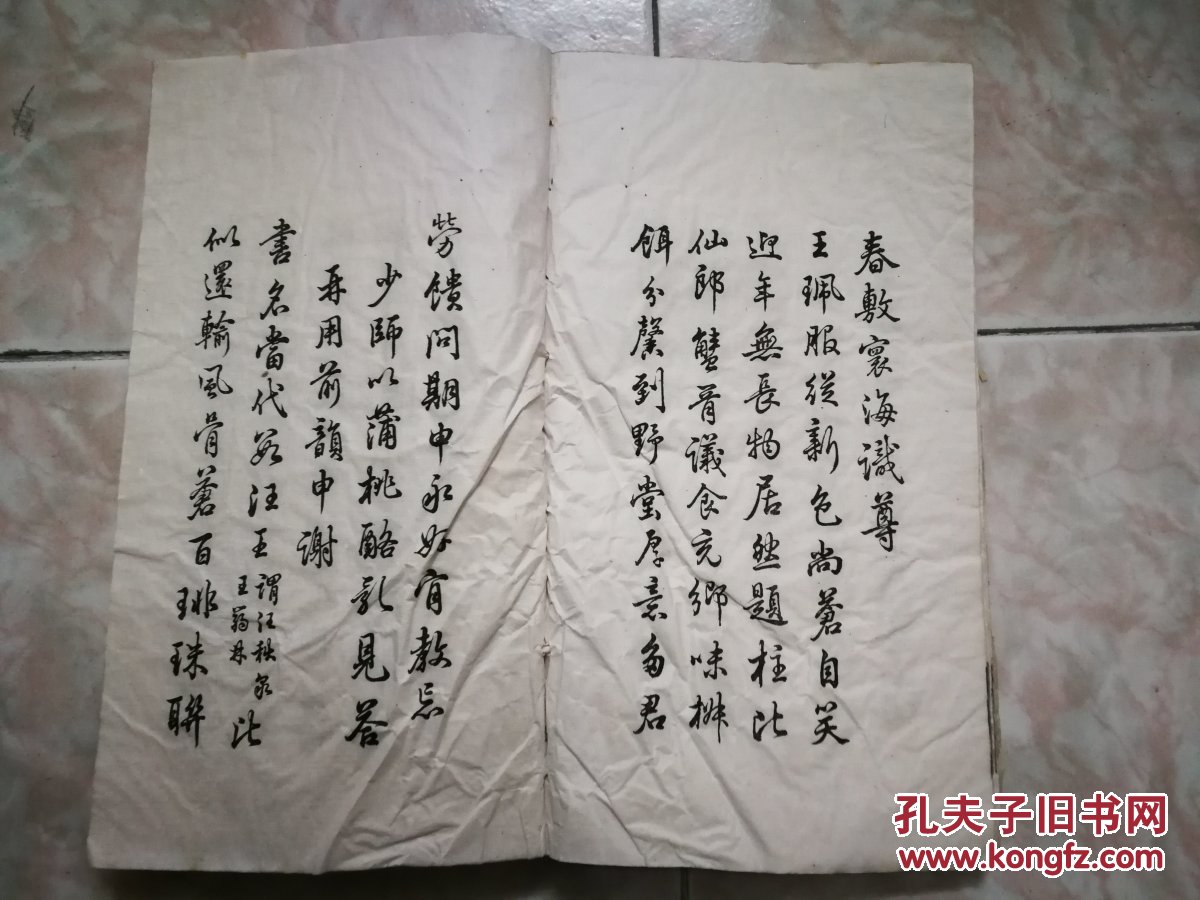 春敷寰海識尊
王珮服從新色尚蒼自笑
迎年無長物居然題柱比
仙郎蟹胥議食充鄉味
餌分馨到野堂厚意多君
勞饋問期申永好有教忘
少師以蒲桃酪見答
再用前韻申謝
書名當代數汪王
謂汪秋泉
王蒻林
比
似還輸風骨蒼百琲珠聯
孔夫子旧书网
www.kongfz.com